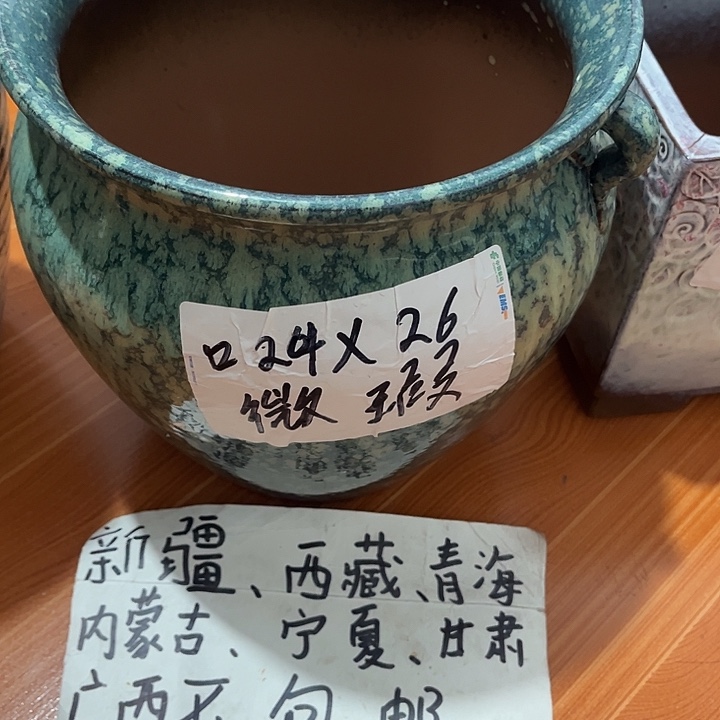 口24X26
微瑕
新疆、西藏、青海
内蒙古、宁夏、甘肃
广西不包邮